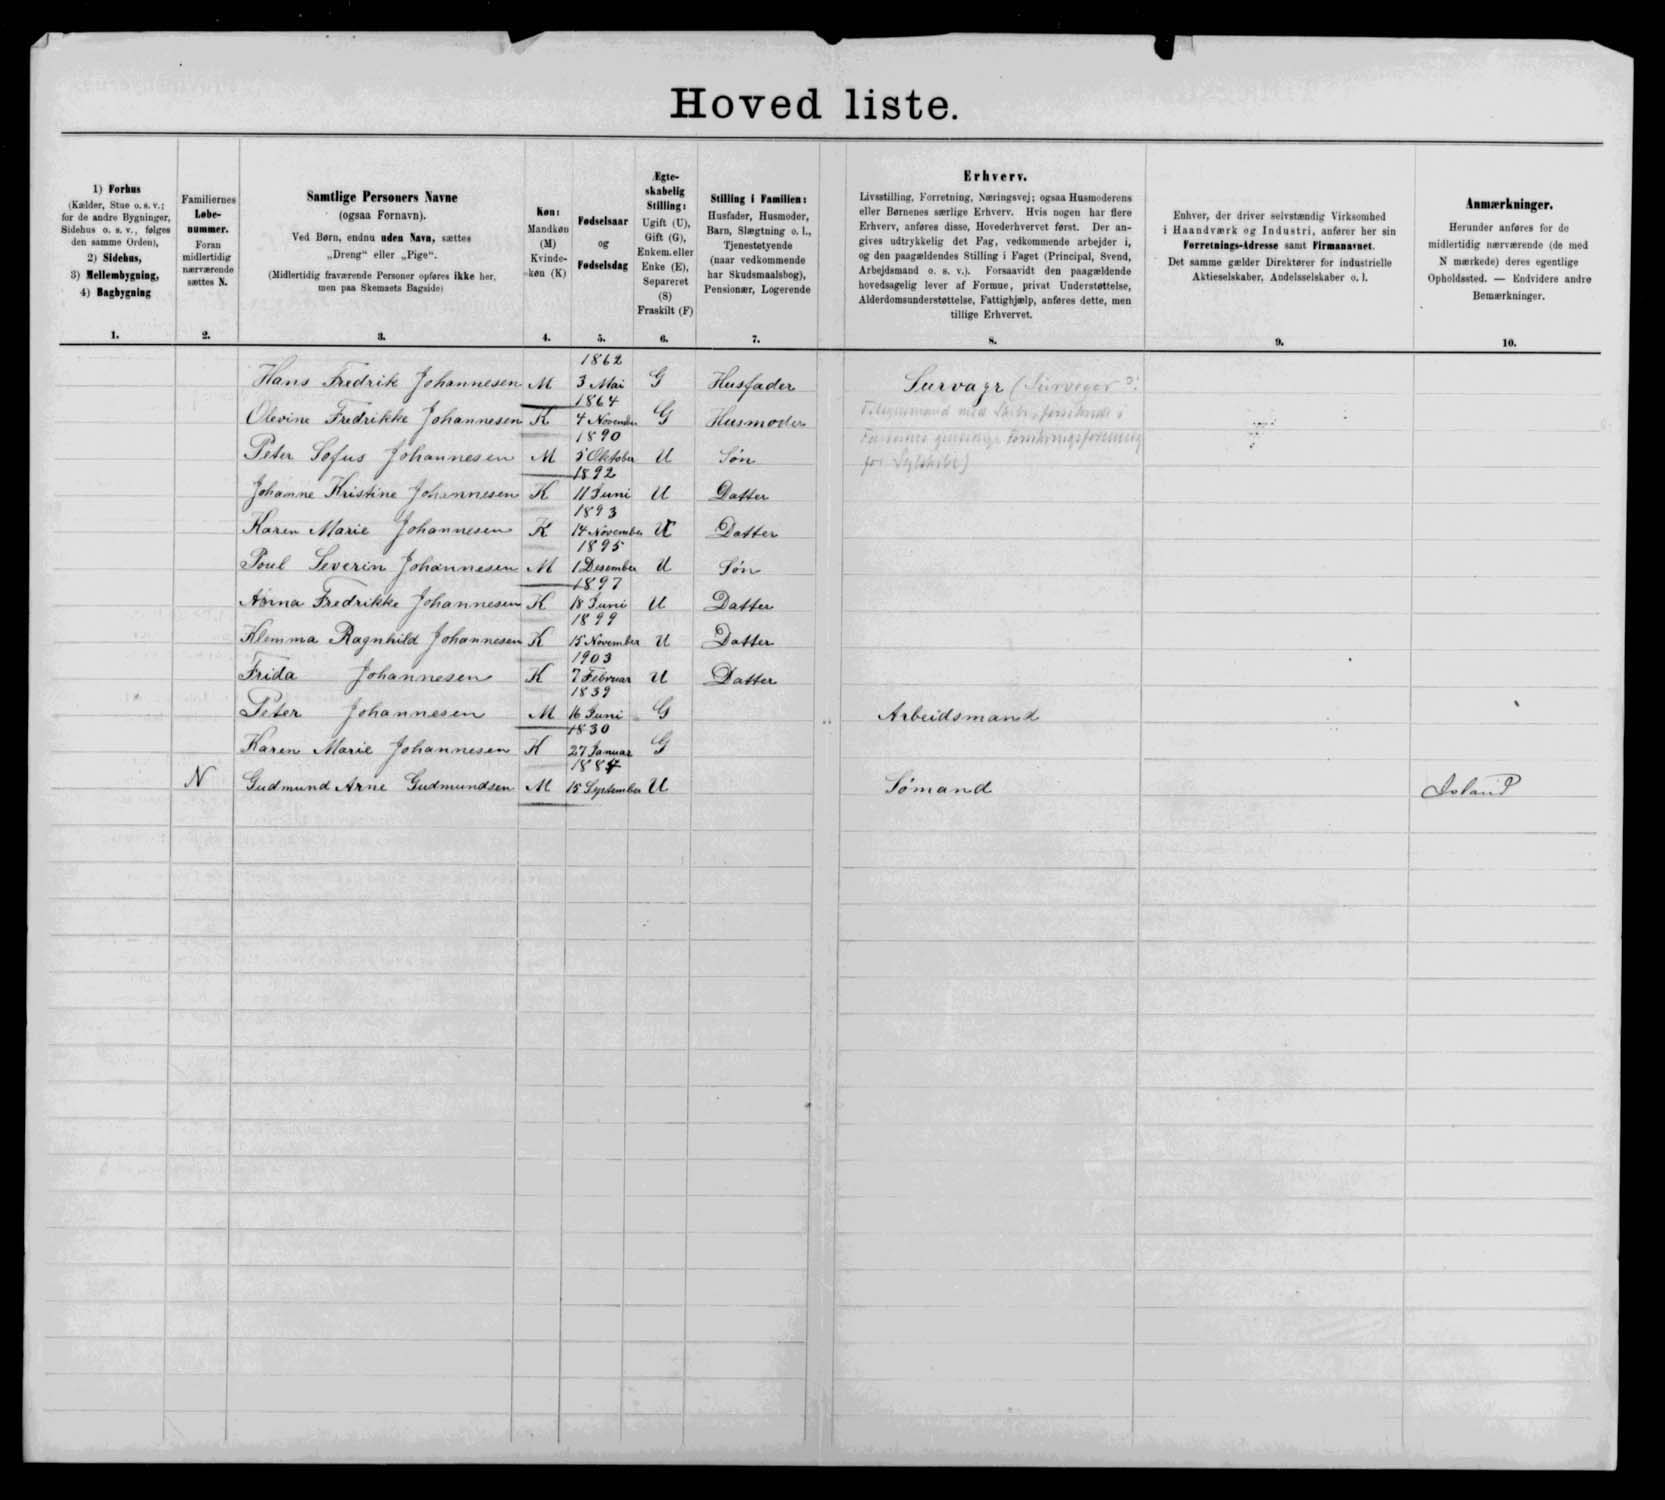 Hoved liste.
1) Forhus
(Kælder, Stue o. s. v.;
for de andre Bygninger,
Sidehus o. s. v., følges
den samme Orden),
2) Sidehus,
3) Mellembygning,
4) Bagbygning
1.
Familiernes
Løbe-
nummer.
Foran
midlertidig
nærværende
sættes N.
2.
Samtlige Personers Navne
(ogsaa Fornavn).
Ved Børn, endnu uden Navn, sættes
„Dreng“ eller „Pige“.
(Midlertidig fraværende Personer opføres ikke her,
men paa Skemaets Bagside)
3.
Køn:
Mandkøn
(M)
Kvinde-
køn (K)
4.
Fødselsaar
og
Fødselsdag
5.
Ægte-
skabelig
Stilling:
Ugift (U),
Gift (G),
Enkem. eller
Enke (E),
Separeret
(S)
Fraskilt (F)
6.
Stilling i Familien:
Husfader, Husmoder,
Barn, Slægtning o. l.,
Tjenestetyende
(naar vedkommende
har Skudsmaalsbog),
Pensionær, Logerende
7.
Erhverv.
Livsstilling, Forretning, Næringsvej; ogsaa Husmoderens
eller Børnenes særlige Erhverv. Hvis nogen har flere
Erhverv, anføres disse, Hovederhvervet først. Der an-
gives udtrykkelig det Fag, vedkommende arbejder i,
og den paagældendes Stilling i Faget (Principal, Svend,
Arbejdsmand o. s. v.). Forsaavidt den paagældende
hovedsagelig lever af Formue, privat Understøttelse,
Alderdomsunderstøttelse, Fattighjælp, anføres dette, men
tillige Erhvervet.
8.
Enhver, der driver selvstændig Virksomhed
i Haandværk og Industri, anfører her sin
Forretnings-Adresse samt Firmanavnet.
Det samme gælder Direktører for industrielle
Aktieselskaber, Andelsselskaber o. l.
9.
Anmærkninger.
Herunder anføres for de
midlertidig nærværende (de med
N mærkede) deres egentlige
Opholdssted. — Endvidere andre
Bemærkninger.
10.
1862
Hans Fredrik Johannesen M 3 Mai G Husfader Survagr (Surveyor
1864
Olevine Fredrikke Johannesen K 4 November G Husmoder
1890
Peter Sofus Johannesen M 5 Oktober U Søn
1892
Johanne Kristine Johannesen K 11 Juni U Datter
1893
Karen Marie Johannesen K 14 November U Datter
1895
Poul Severin Johannesen M 1 Desember U Søn
1897
Anna Fredrikke Johannesen K 18 Juni U Datter
1899
Klemma Ragnhild Johannesen K 15 November U Datter
1903
Frida Johannesen K 7 Februar U Datter
1839
Peter Johannesen M 16 Juni G Arbeidsmand
1830
Karen Marie Johannesen K 27 Januar G
1884
N Gudmund Arne Gudmundsen M 15 September U Sømand Island